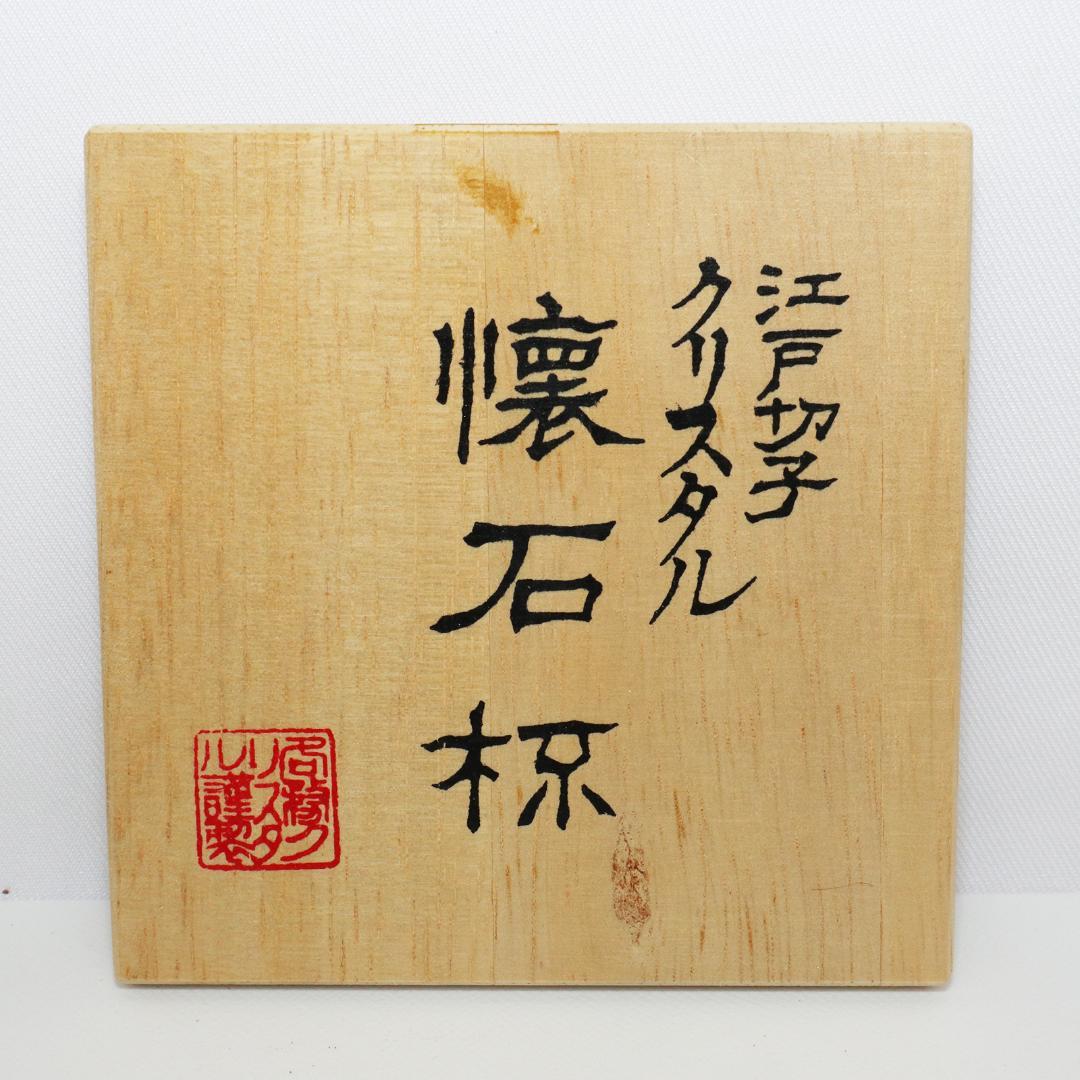 江戸切子
クリスタル
懐石杯
各務クリスタル謹製